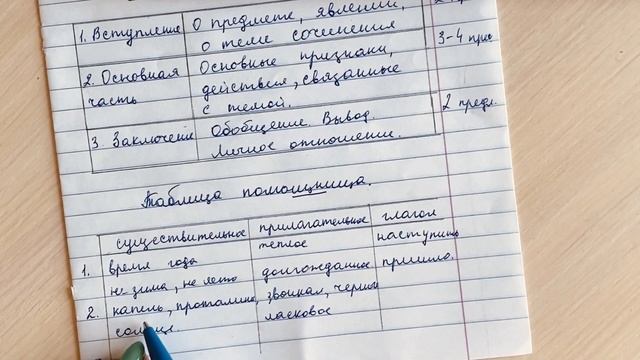 1. Вступление О предмете, явлении,
о теме сочинения
2. Основная часть Основные признаки,
действия, связанные
с темой.
3-4 пр
3. Заключение Обобщение. Вывод.
Личное отношение.
2 предл.
Таблица помощница.
существительное прилагательное глагол
1. время года теплое наступить
не зима, не лето долгожданное пришло.
2. капель, проталины, звонкая,
солнце ласковое